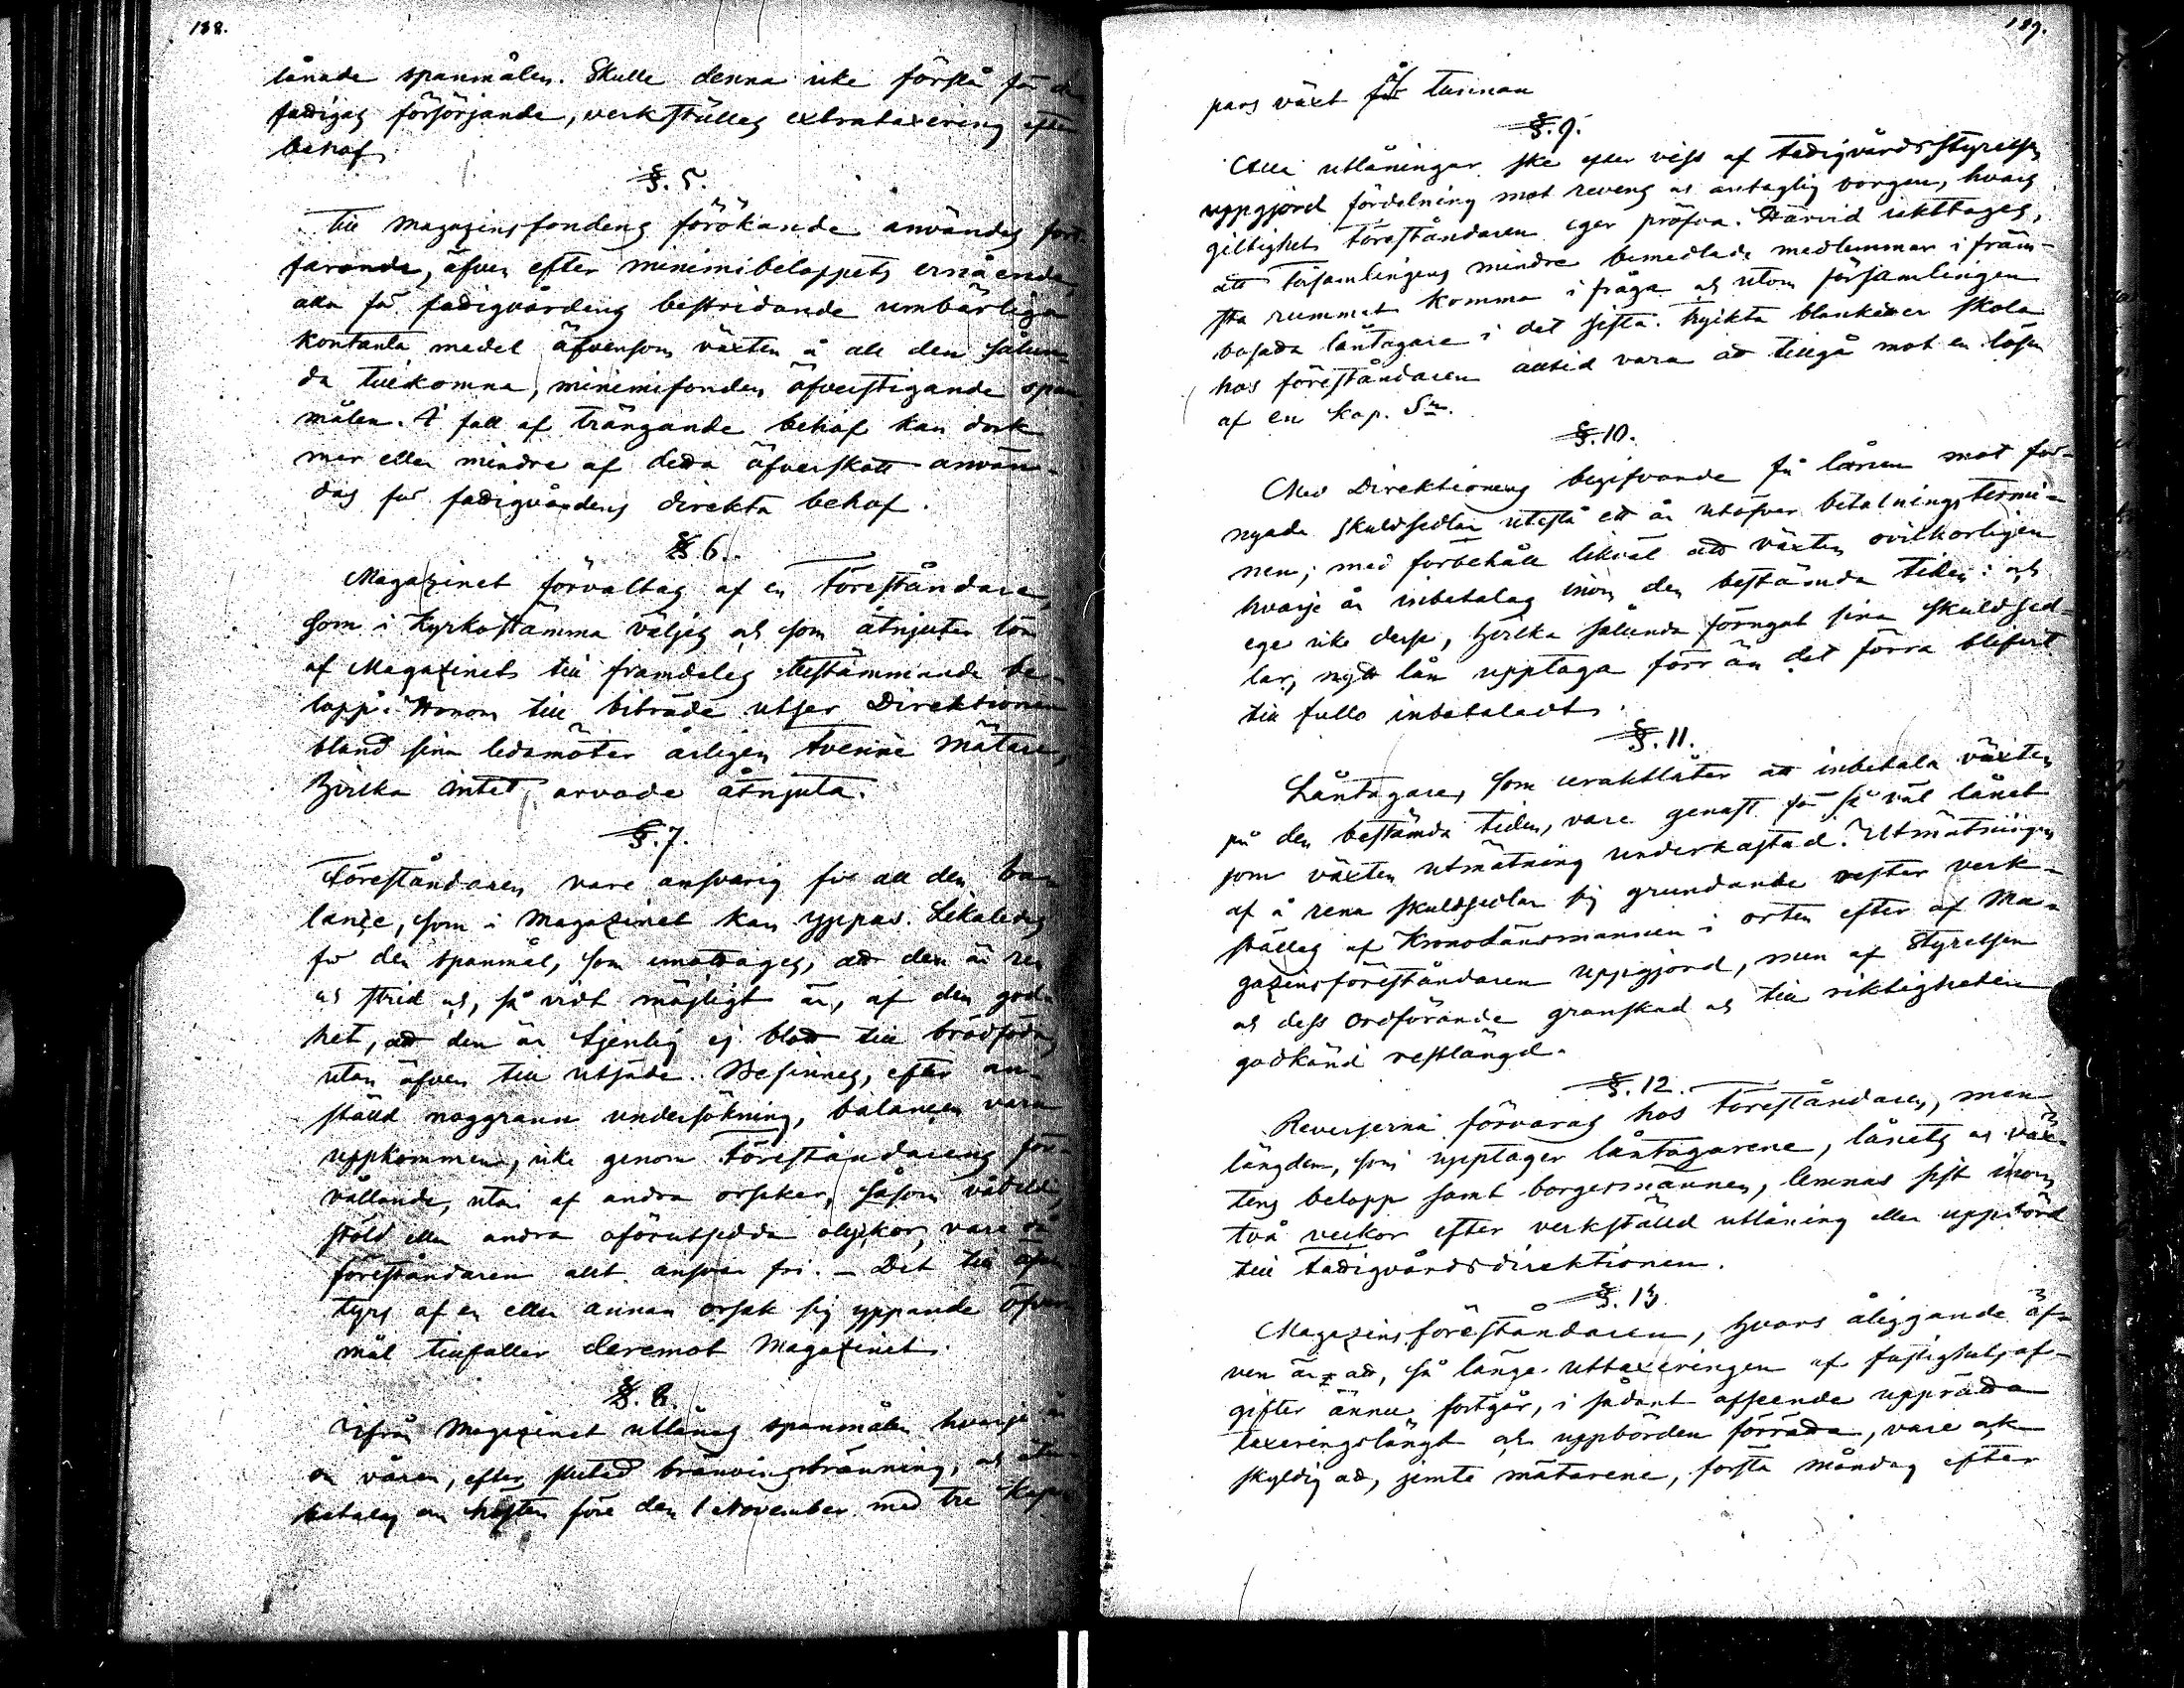 188.
lånade spanmålen. Skulle denna icke förslå för de
fattigas försörjande, verkställes extrataxering efter
behof.
§. 5.
Till Magazinsfondens förökande användes fort-
farande, äfven efter minimibeloppets ernående,
alla för fattigvårdens bestridande umbärliga
kontanta medel äfvensom växten å all den sålun-
da tillkomna, minimifonden öfverstigande span-
målen. I fall af trängande behof kan dock
mer eller mindre af detta öfverskott använ-
das för fattigvårdens direkta behof.
§ 6.
Magazinet förvaltas af en Föreståndare,
som i Kyrkostämma väljes och som åtnjuter lön
af Magazinet till framdeles bestämmande be-
lopp. Honom till biträde utser Direktionen
bland sina ledamöter årligen tvenne Mätare,
hvilka intet arvode åtnjuta.
§. 7.
Föreståndaren vare ansvarig för all den ba-
lance, som i Magazinet kan yppas. Likaledes
för den spanmål, som emottages, att den är ren
och strid och, så vidt möjligt är, af den god-
het, att den är tjenlig ej blott till brödföda,
utan äfven till utsäde. Befinnes, efter an-
ställd noggrann undersökning, balancen vara
uppkommen, icke genom Föreståndarens för-
vållande, utan af andra orsaker, såsom vådeld,
stöld eller andra oförutsedda olyckor, vare då
föreståndaren allt ansvar fri. – Det till äfven-
tyrs af en eller annan orsak sig yppande öfver-
mål tillfaller deremot Magazinet.
§. 8.
Ifrån Magazinet utlånas spanmålen hvarje år
om våren, efter slutad bränvinsbränning, och åter-
betalas om hösten före den 1 November med tre kap-
189.
pars växt å tunnan
§. 9.
Alla utlåningar ske efter viss af Fattigvårdsstyrelsen
uppgjord fördelning mot revers och antaglig borgen, hvars
giltighet Föreståndaren eger pröfva. Härvid iakttages,
att Församlingens mindre bemedlade medlemmar i främ-
sta rummet komma i fråga och utom församlingen
bosatta låntagare i det sista. Tryckta blanketter skola
hos föreståndaren alltid vara att tillgå mot en lösen
af en kop. Sr.
§. 10.
Med Direktionens begifvande få lånen mot för-
nyade skuldsedlar utestå ett år utöfver betalningstermi-
nen; med förbehåll likväl att växten ovilkorligen
hvarje år inbetalas inom den bestämda tiden; och
ege icke desse, hvilka sålunda förnyat sina skuldsed-
lar, nytt lån upptaga förr än det förra blifvit
till fullo inbetaladt.
§. 11.
Låntagare, som uraktlåter att inbetala växten
på den bestämda tiden, vare genast för så väl lånet
som växten utmätning underkastad. Utmätningen
af å rena skuldsedlar sig grundande rester verk-
ställes af Kronolänsmannen i orten efter af Ma-
gazinsföreståndaren uppgjord, men af Styrelsen
och dess Ordförande granskad och till riktigheten
godkänd restlängd.
§. 12.
Reverserna förvaras hos Föreståndaren, men
längden, som upptager låntagarene, lånets och väx-
tens belopp samt borgesmännen, lemnas sist inom
två veckor efter verkställd utlåning eller uppbörd
till Fattigvårdsdirektionen.
§. 13.
Magazinsföreståndaren, hvars åliggande äf-
ven är att, så länge uttaxeringen af fastighets af-
gifter ännu fortgår, i sådant afseende upprätta
taxeringslängd och uppbörden förrätta, vare ock
skyldig att, jemte mätarene, första måndag efter